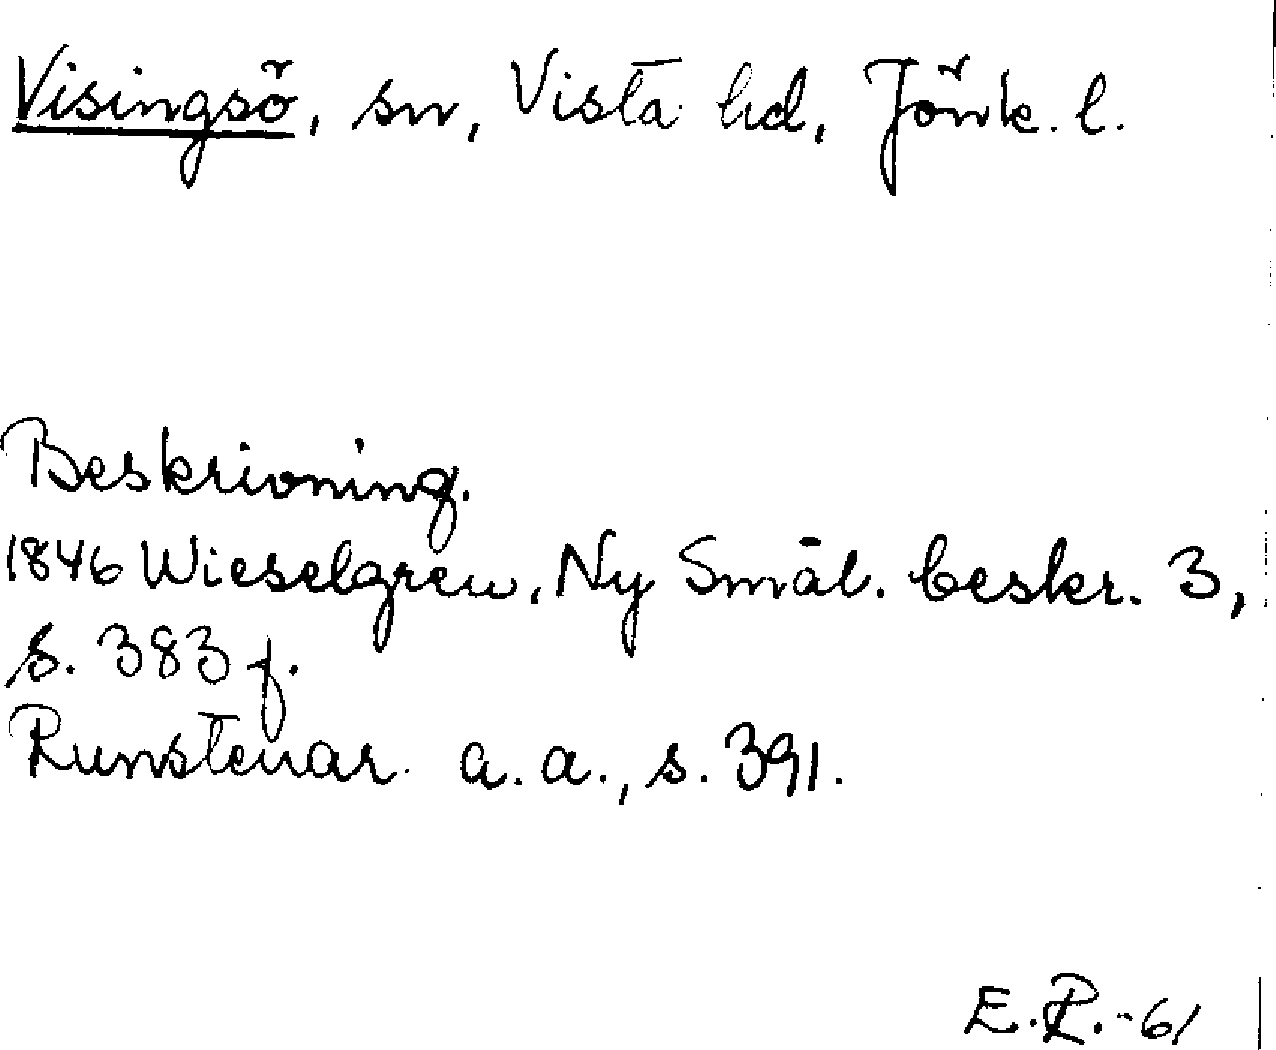 Visingsö, sn, Vista hd, Jönk. l.
Beskrivning.
1846 Wieselgren, Ny Smål. beskr. 3,
s. 383 f.
Runstenar. a. a., s. 391.
E.R.-61